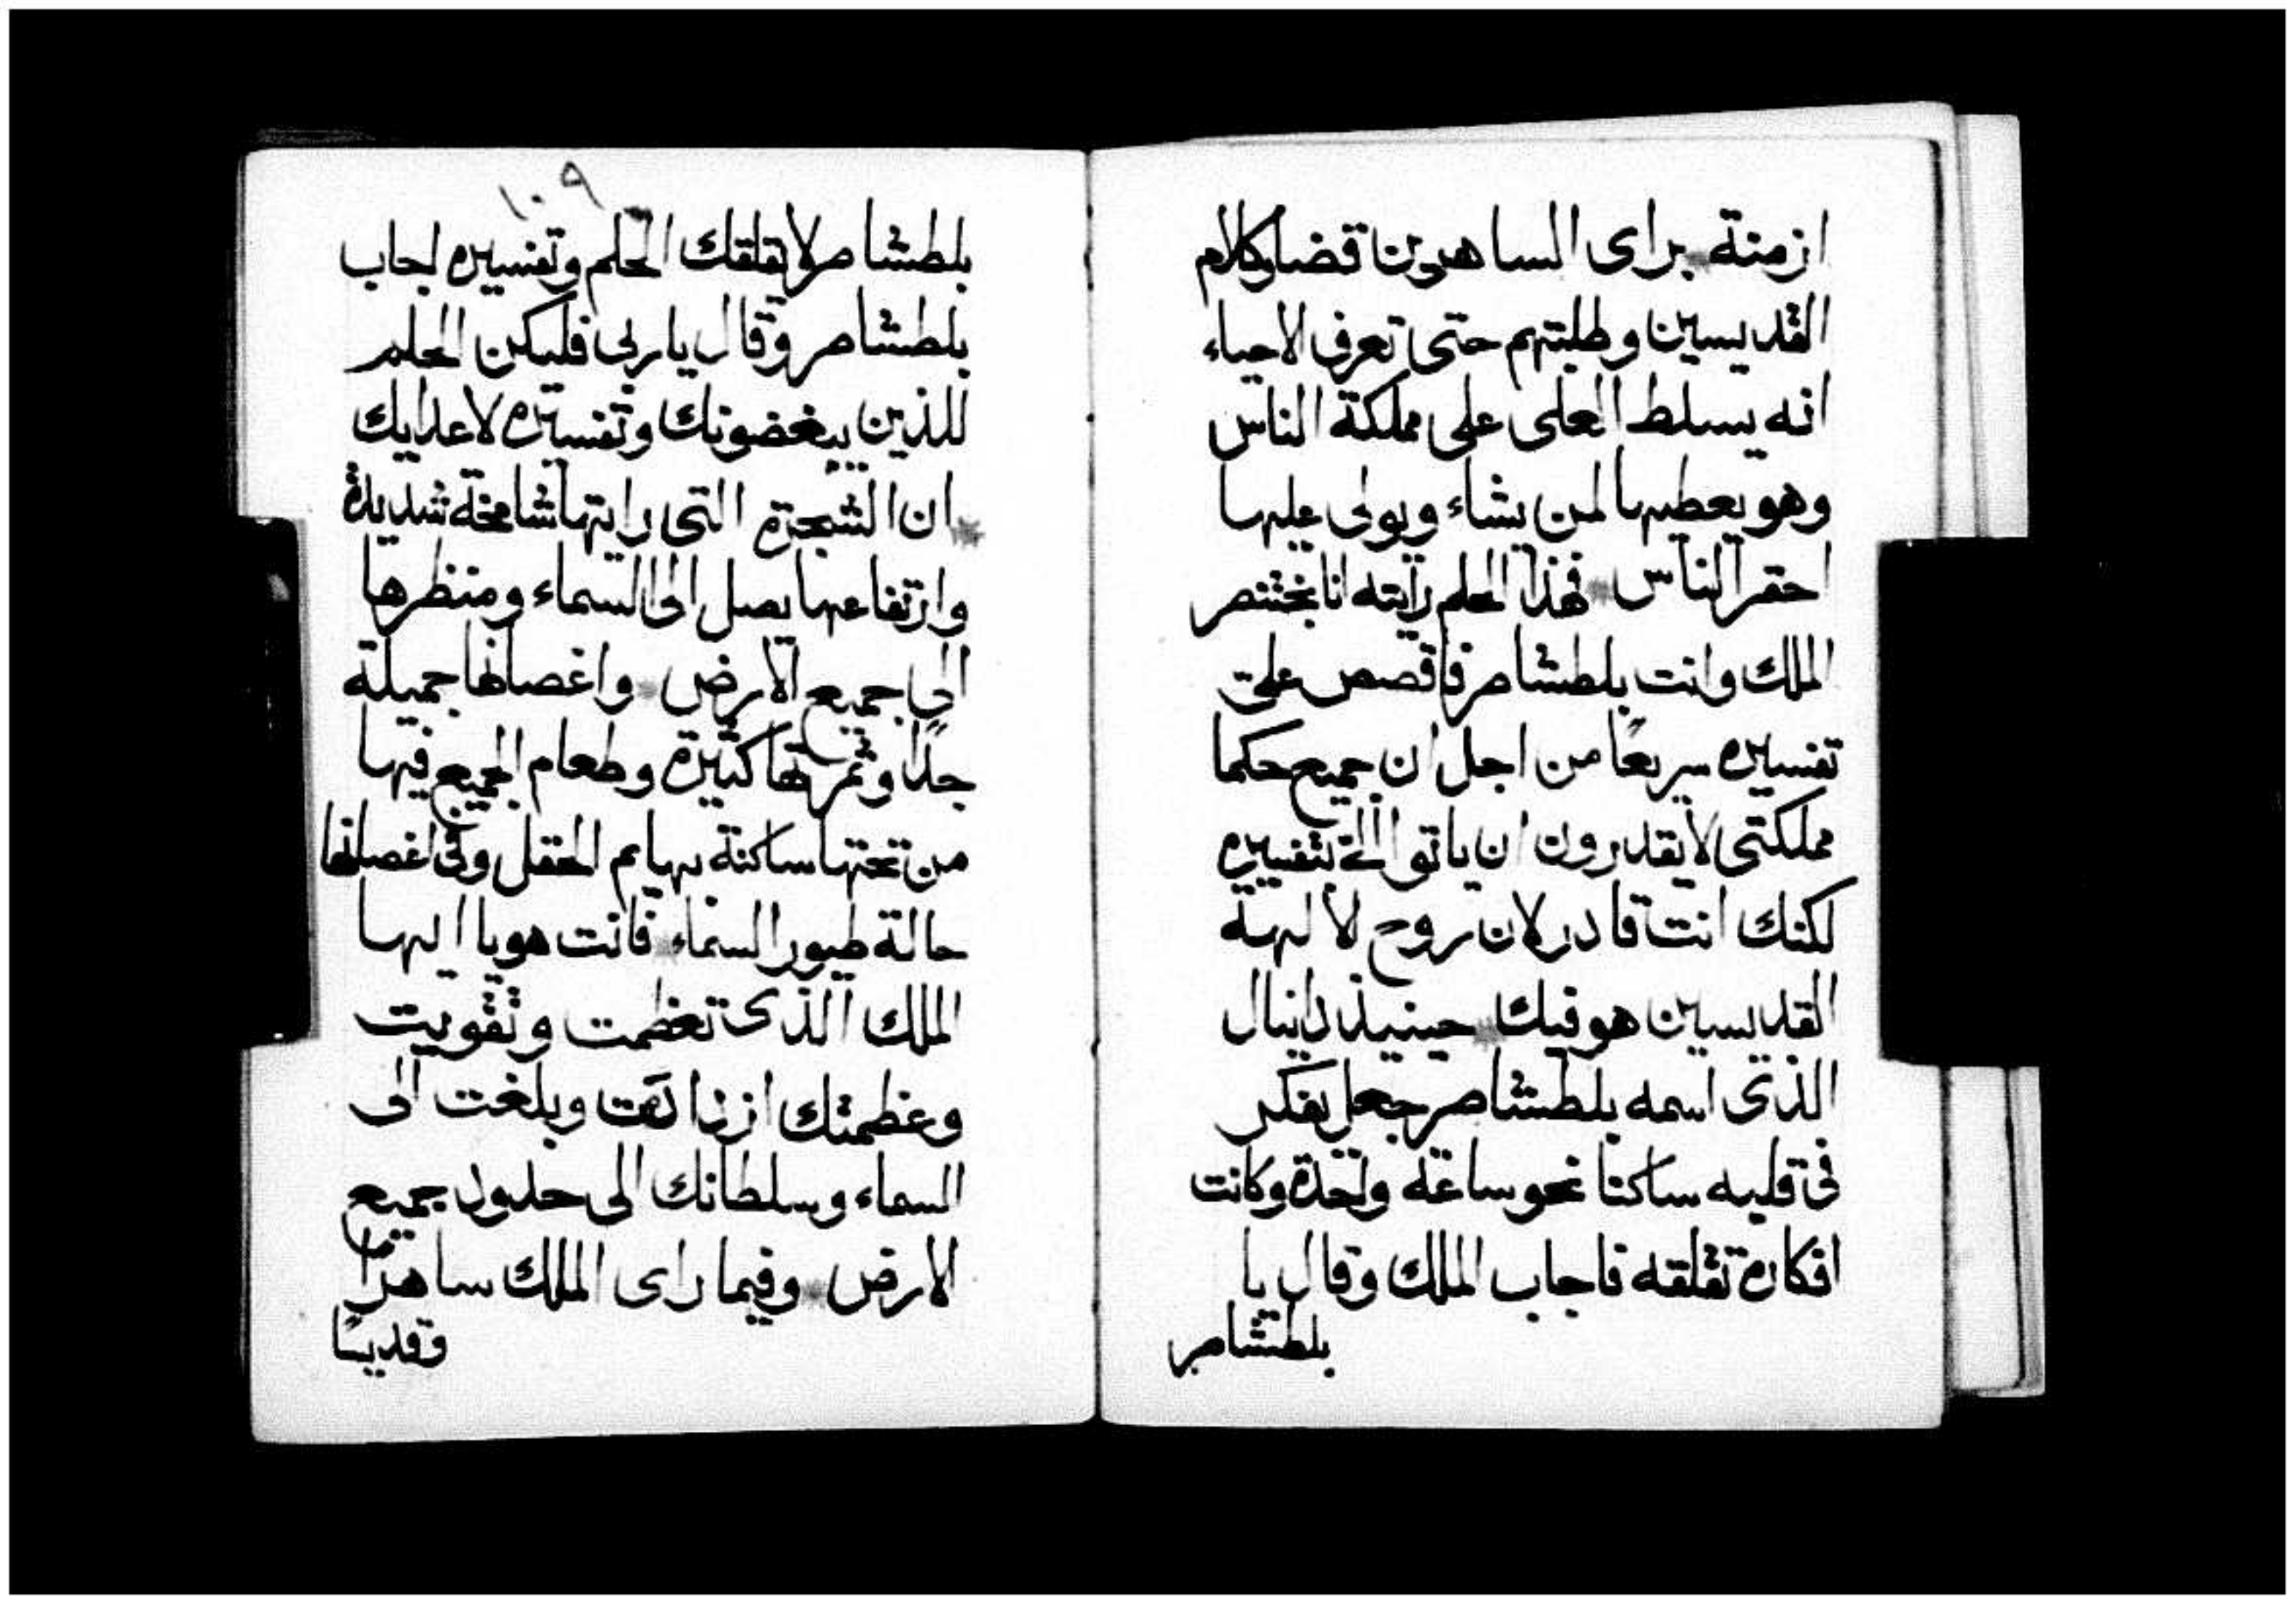 ازمنة براى الساهرين قضا وكلام
القديسين وطلبتهم حتى تعرفى الاحياء
انه يسلط العلى على مملكة الناس
وهو يعطيها لمن يشاء ويولى عليها
احقر الناس فهذا الحلم رايته انا بختنصر
الملك وانت بلطشاصر فاقصص علىّ
تفسيره سريعًا من اجل ان جميع حكما
مملكتى لا يقدرون ان ياتوا الىّ بتفسيره
لكنك انت قادر لان روح الالهة
القديسين هو فيك حينيذ دانيال
الذى اسمه بلطشاصر جعل يفكر
فى قلبه ساكتا نحو ساعة واحدة وكانت
افكاره تقلقه فاجاب الملك وقال يا
بلطشاصر
١٠٩
بلطشاصر لا يقلقك الحلم وتفسيره اجاب
بلطشاصر وقال يا ربى فليكن الحلم
للذين يبغضونك وتفسيره لاعدايك
ان الشجرة التى رايتها شامخة شديدة
وارتفاعها يصل الى السماء ومنظرها
الى جميع الارض واغصانها جميلة
جدًا وثمرتها كثيرة وطعام الجميع فيها
من تحتها ساكنة بهايم الحقل وفى اغصانها
حالة طيور السماء فانت هو يا ايها
الملك الذى تعظمت وتقويت
وعظمتك ازدادت وبلغت الى
السماء وسلطانك الى حدود جميع
الارض وفيما راى الملك ساهرًا
وقديسًا